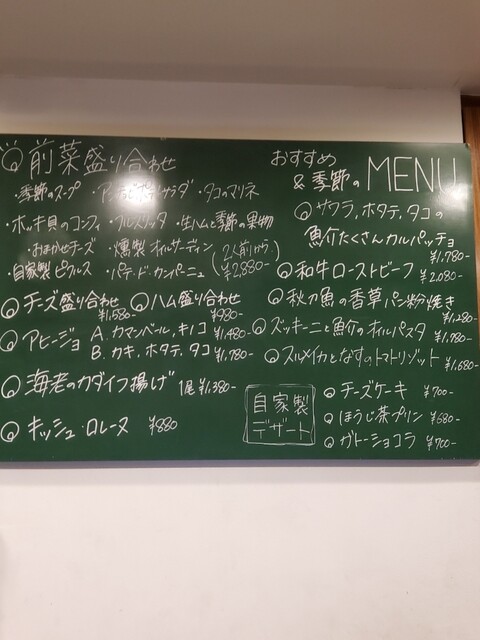 前菜盛り合わせ
・季節のスープ ・アンチョビポテトサラダ ・タコのマリネ
・ホッキ貝のコンフィ ・ブルスケッタ ・生ハムと季節の果物
・おまかせチーズ ・燻製オイルサーディン
・自家製ピクルス ・パテ・ド・カンパーニュ (2人前から ¥2,880-)
チーズ盛り合わせ ¥1,580- ハム盛り合わせ ¥980-
アヒージョ A. カマンベール,キノコ ¥1,480-
B. カキ,ホタテ,タコ ¥1,780-
海老のカダイフ揚げ 1尾 ¥1,380-
キッシュ・ロレーヌ ¥880
おすすめ
&季節のMENU
サワラ,ホタテ,タコの
魚介たくさんカルパッチョ
¥1,780-
和牛ローストビーフ ¥2,080-
秋刀魚の香草パン粉焼き
¥1,280-
ズッキーニと魚介のオイルパスタ
¥1,780-
スルメイカとなすのトマトリゾット
¥1,680-
自家製
デザート
チーズケーキ ¥700-
ほうじ茶プリン ¥680-
ガトーショコラ ¥700-